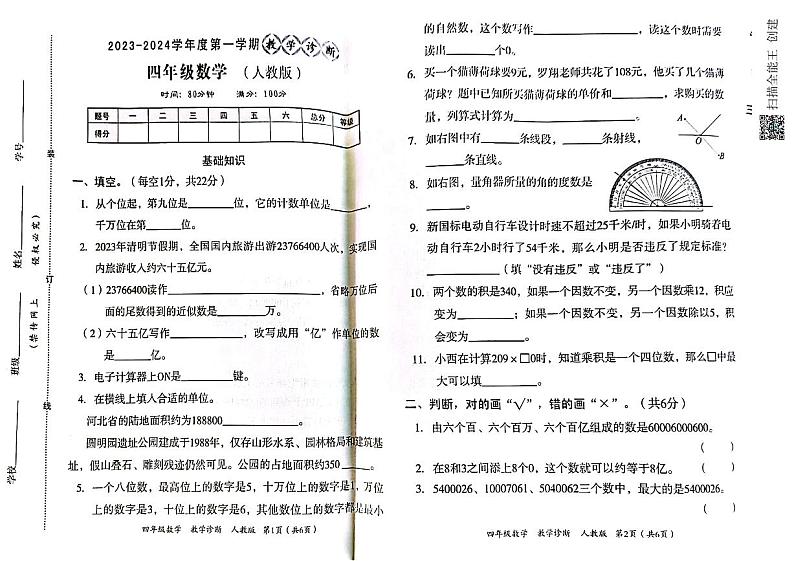 2023-2024学年度第一学期 教学诊断
四年级数学 （人教版）
时间：80分钟 满分：100分
题号 一 二 三 四 五 六 总分 等级
得分
基础知识
一、填空。（每空1分，共22分）
1. 从个位起，第九位是________位，它的计数单位是________，
千万位在第________位。
2. 2023年清明节假期，全国国内旅游出游23766400人次，实现国
内旅游收入约六十五亿元。
（1）23766400读作________________，省略万位后
面的尾数得到的近似数是________万。
（2）六十五亿写作____________，改写成用“亿”作单位的数
是______亿。
3. 电子计算器上ON是________键。
4. 在横线上填入合适的单位。
河北省的陆地面积约为188800____________。
圆明园遗址公园建成于1988年，仅存山形水系、园林格局和建筑基
址，假山叠石、雕刻残迹仍然可见。公园的占地面积约350______。
5. 一个八位数，最高位上的数字是5，十万位上的数字是1，万位
上的数字是3，十位上的数字是6，其他数位上的数字都是最小
四年级数学 教学诊断 人教版 第1页（共6页）
学校________ 班级________ 姓名________ 学号________
（禁传网上 侵权必究）
装 订 线
的自然数，这个数写作________________，读这个数时需要
读出________个0。
6. 买一个猫薄荷球要9元，罗翔老师共花了108元，他买了几个猫薄
荷球？题中已知所买猫薄荷球的单价和__________，求购买的数
量，列算式计算为________________。
7. 如右图中有______条线段，______条射线，
______条直线。
A O B
8. 如右图，量角器所量的角的度数是
________。
9. 新国标电动自行车设计时速不超过25千米/时，如果小明骑着电
动自行车2小时行了54千米，那么小明是否违反了规定标准？
____________（填“没有违反”或“违反了”）
10. 两个数的积是340，如果一个因数不变，另一个因数乘12，积应
变为________；如果一个因数不变，另一个因数除以5，积
会变为________。
11. 小西在计算209×□0时，知道乘积是一个四位数，那么□中最
大可以填________。
二、判断，对的画“√”，错的画“×”。（共6分）
1. 由六个百、六个百万、六个百亿组成的数是60006000600。
（ ）
2. 在8和3之间添上8个0，这个数就可以约等于8亿。（ ）
3. 5400026、10007061、5040062三个数中，最大的是5400026。
（ ）
四年级数学 教学诊断 人教版 第2页（共6页）
扫描全能王 创建